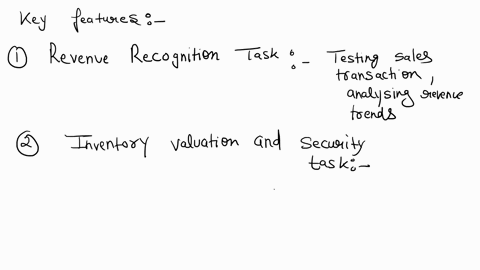 Key features:-
① Revenue Recognition Task :- Testing sales
transaction,
analysing revenue
trends
② Inventory valuation and security
task:-